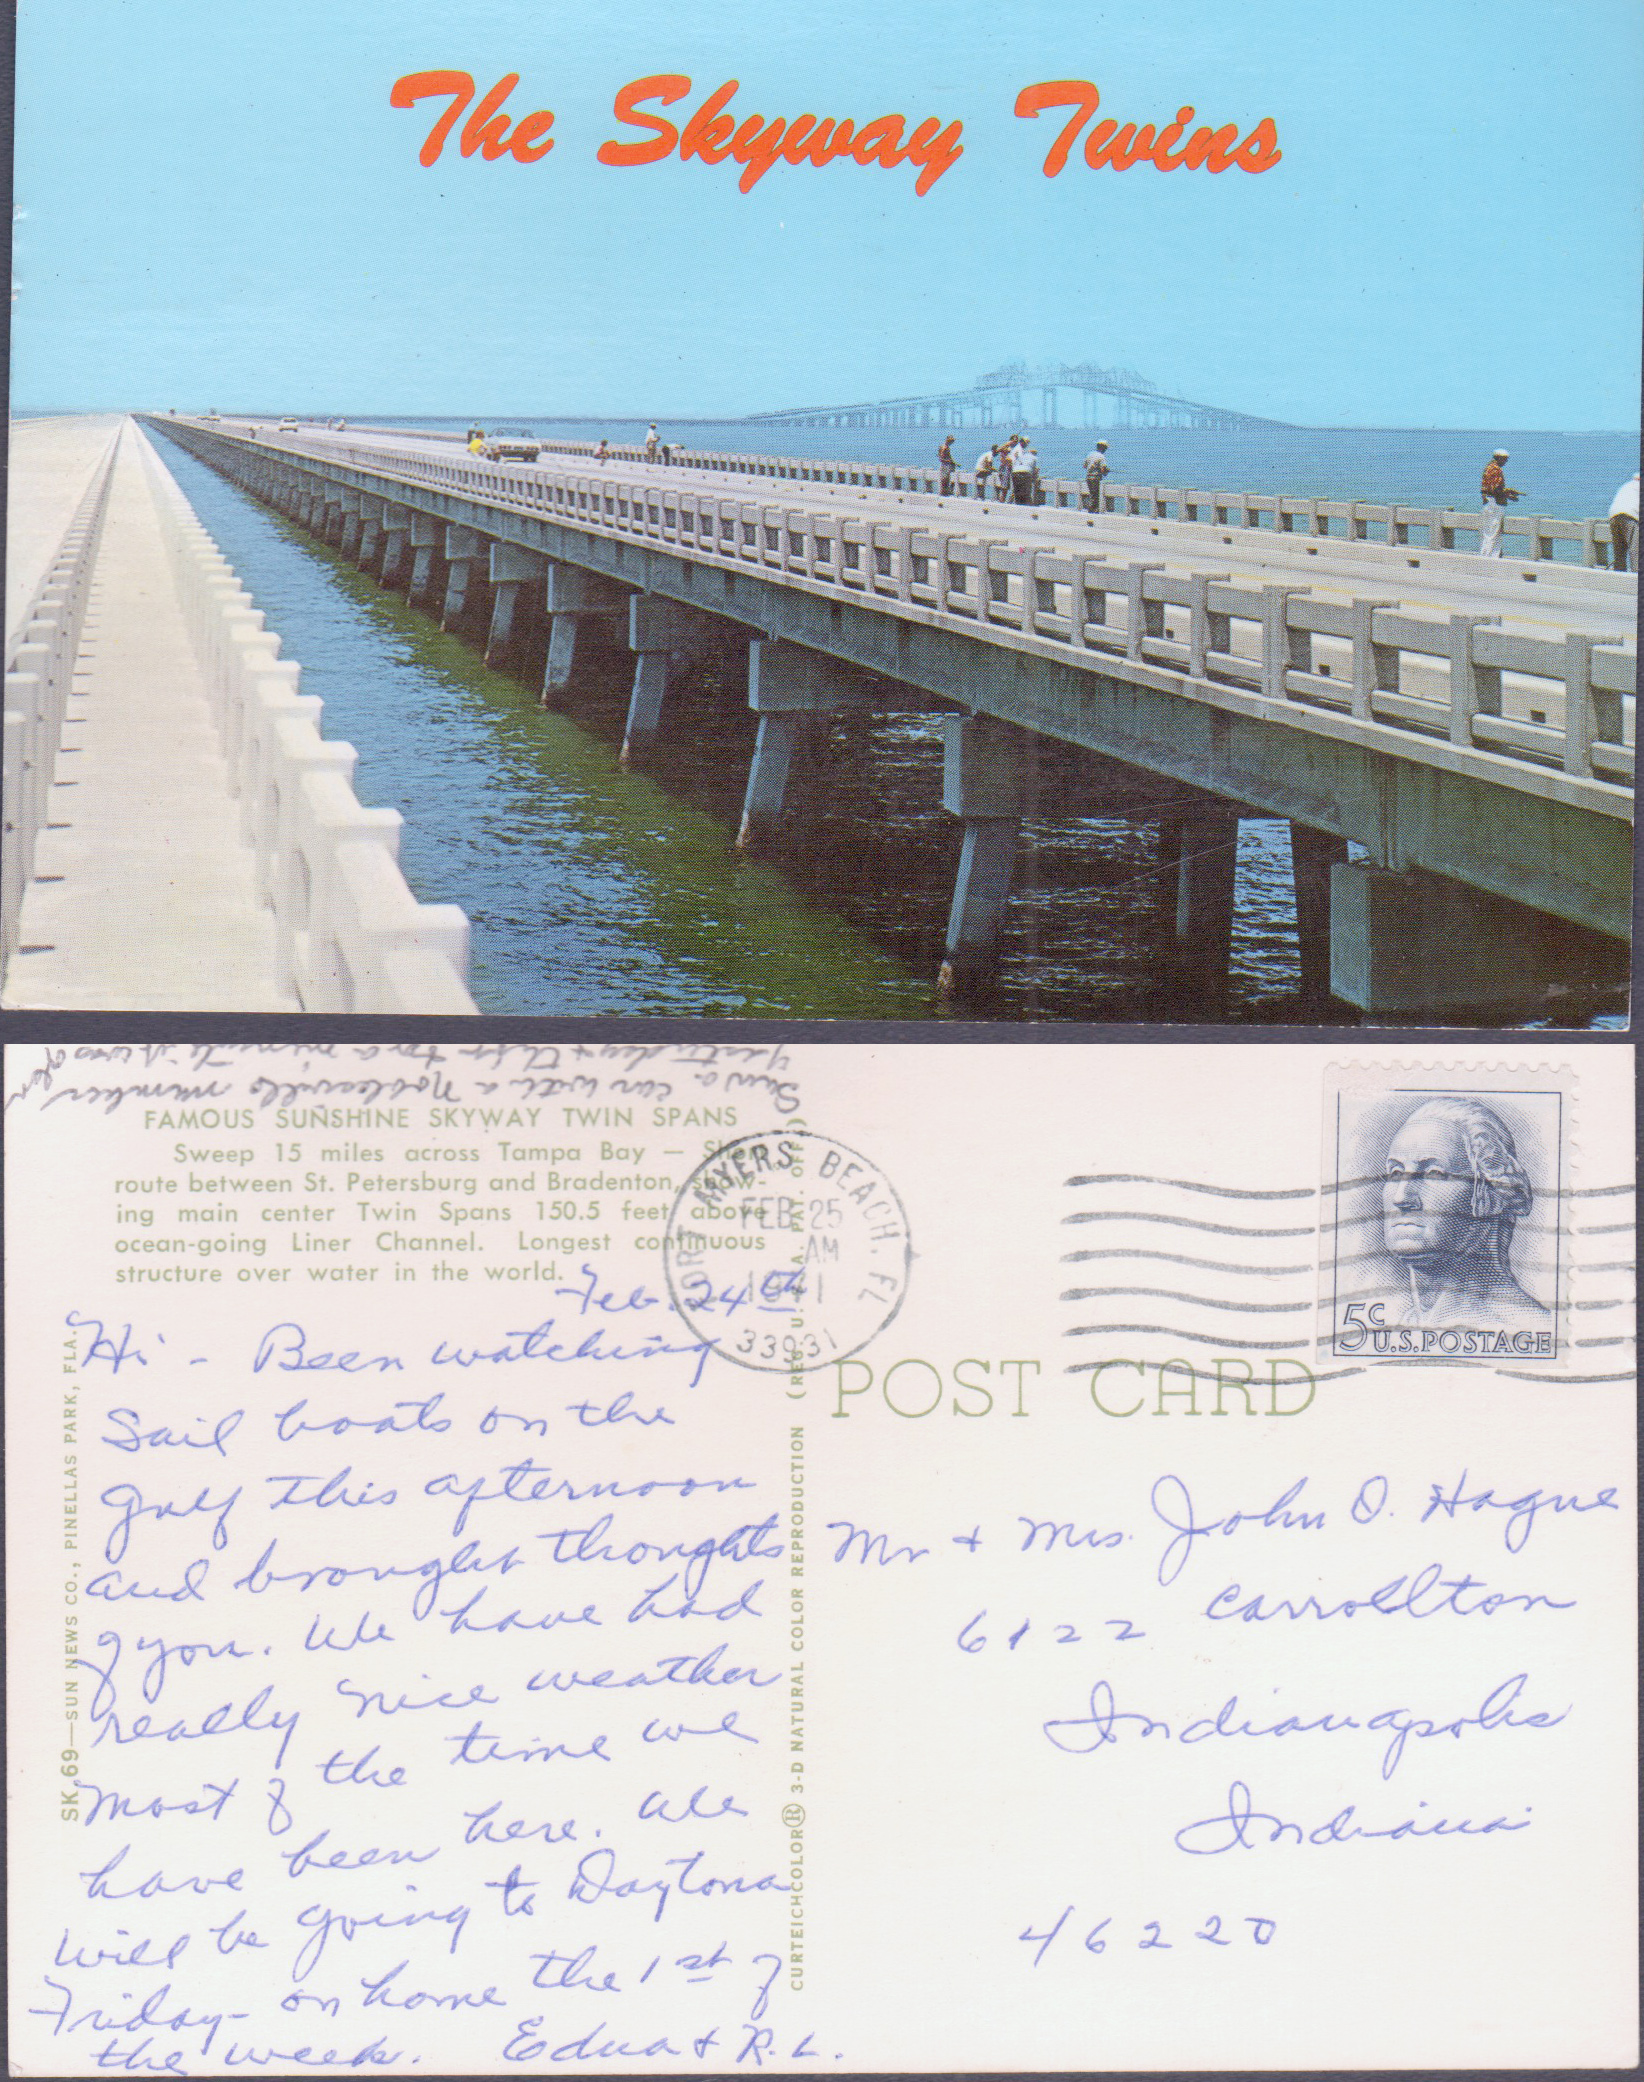 The Skyway Twins
Saw a car with a Noblesville number
yesterday & thot for a minute it was
FAMOUS SUNSHINE SKYWAY TWIN SPANS
Sweep 15 miles across Tampa Bay — Short
route between St. Petersburg and Bradenton, show-
ing main center Twin Spans 150.5 feet above
ocean-going Liner Channel. Longest continuous
structure over water in the world.
Feb. 24th
Hi - Been watching
Sail boats on the
gulf this afternoon
and brought thoughts
of you. We have had
really nice weather
most of the time we
have been here. We
will be going to Daytona
Friday - on home the 1st of
the week. Edna & R. L.
SK.69—SUN NEWS CO., PINELLAS PARK, FLA.
CURTEICHCOLOR® 3-D NATURAL COLOR REPRODUCTION (REG. U.S.A. PAT. OFF.)
FORT MYERS BEACH. FL
FEB 25
AM
1971
33931
5c
U.S. POSTAGE
POST CARD
Mr + Mrs. John O. Hague
6122 Carrollton
Indianapolis
Indiana
46220